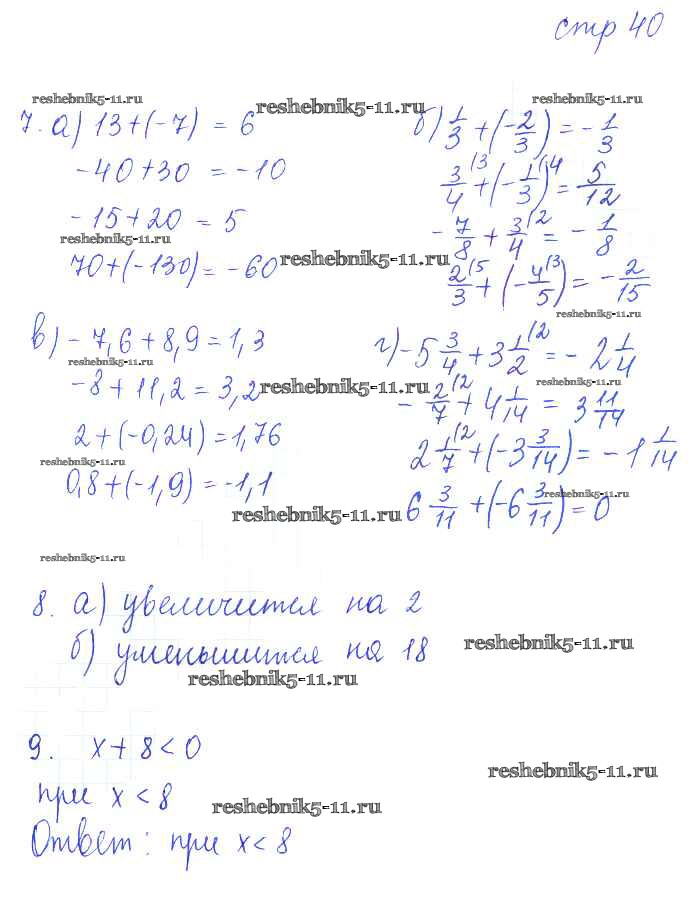 стр 40
reshebnik5-11.ru
reshebnik5-11.ru
reshebnik5-11.ru
7. а) 13+(-7) = 6
-40+30 = -10
-15+20 = 5
reshebnik5-11.ru
70+(-130) = -60
б) 1/3 + (-2/3) = -1/3
3/4 (3 + (-1/3) (4 = 5/12
-7/8 + 3/4 (2 = -1/8
reshebnik5-11.ru
2/3 (5 + (-4/5 (3) = -2/15
reshebnik5-11.ru
в) -7,6 + 8,9 = 1,3
reshebnik5-11.ru
-8 + 11,2 = 3,2
reshebnik5-11.ru
2 + (-0,24) = 1,76
reshebnik5-11.ru
0,8 + (-1,9) = -1,1
г) -5 3/4 + 3 1/2 (2 = -2 1/4
reshebnik5-11.ru
-2/7 (2 + 4 1/14 = 3 11/14
2 1/7 (2 + (-3 3/14) = -1 1/14
reshebnik5-11.ru
6 3/11 + (-6 3/11) = 0
reshebnik5-11.ru
reshebnik5-11.ru
8. а) увеличится на 2
б) уменьшится на 18
reshebnik5-11.ru
reshebnik5-11.ru
9. x + 8 < 0
reshebnik5-11.ru
при x < 8
reshebnik5-11.ru
Ответ: при x < 8